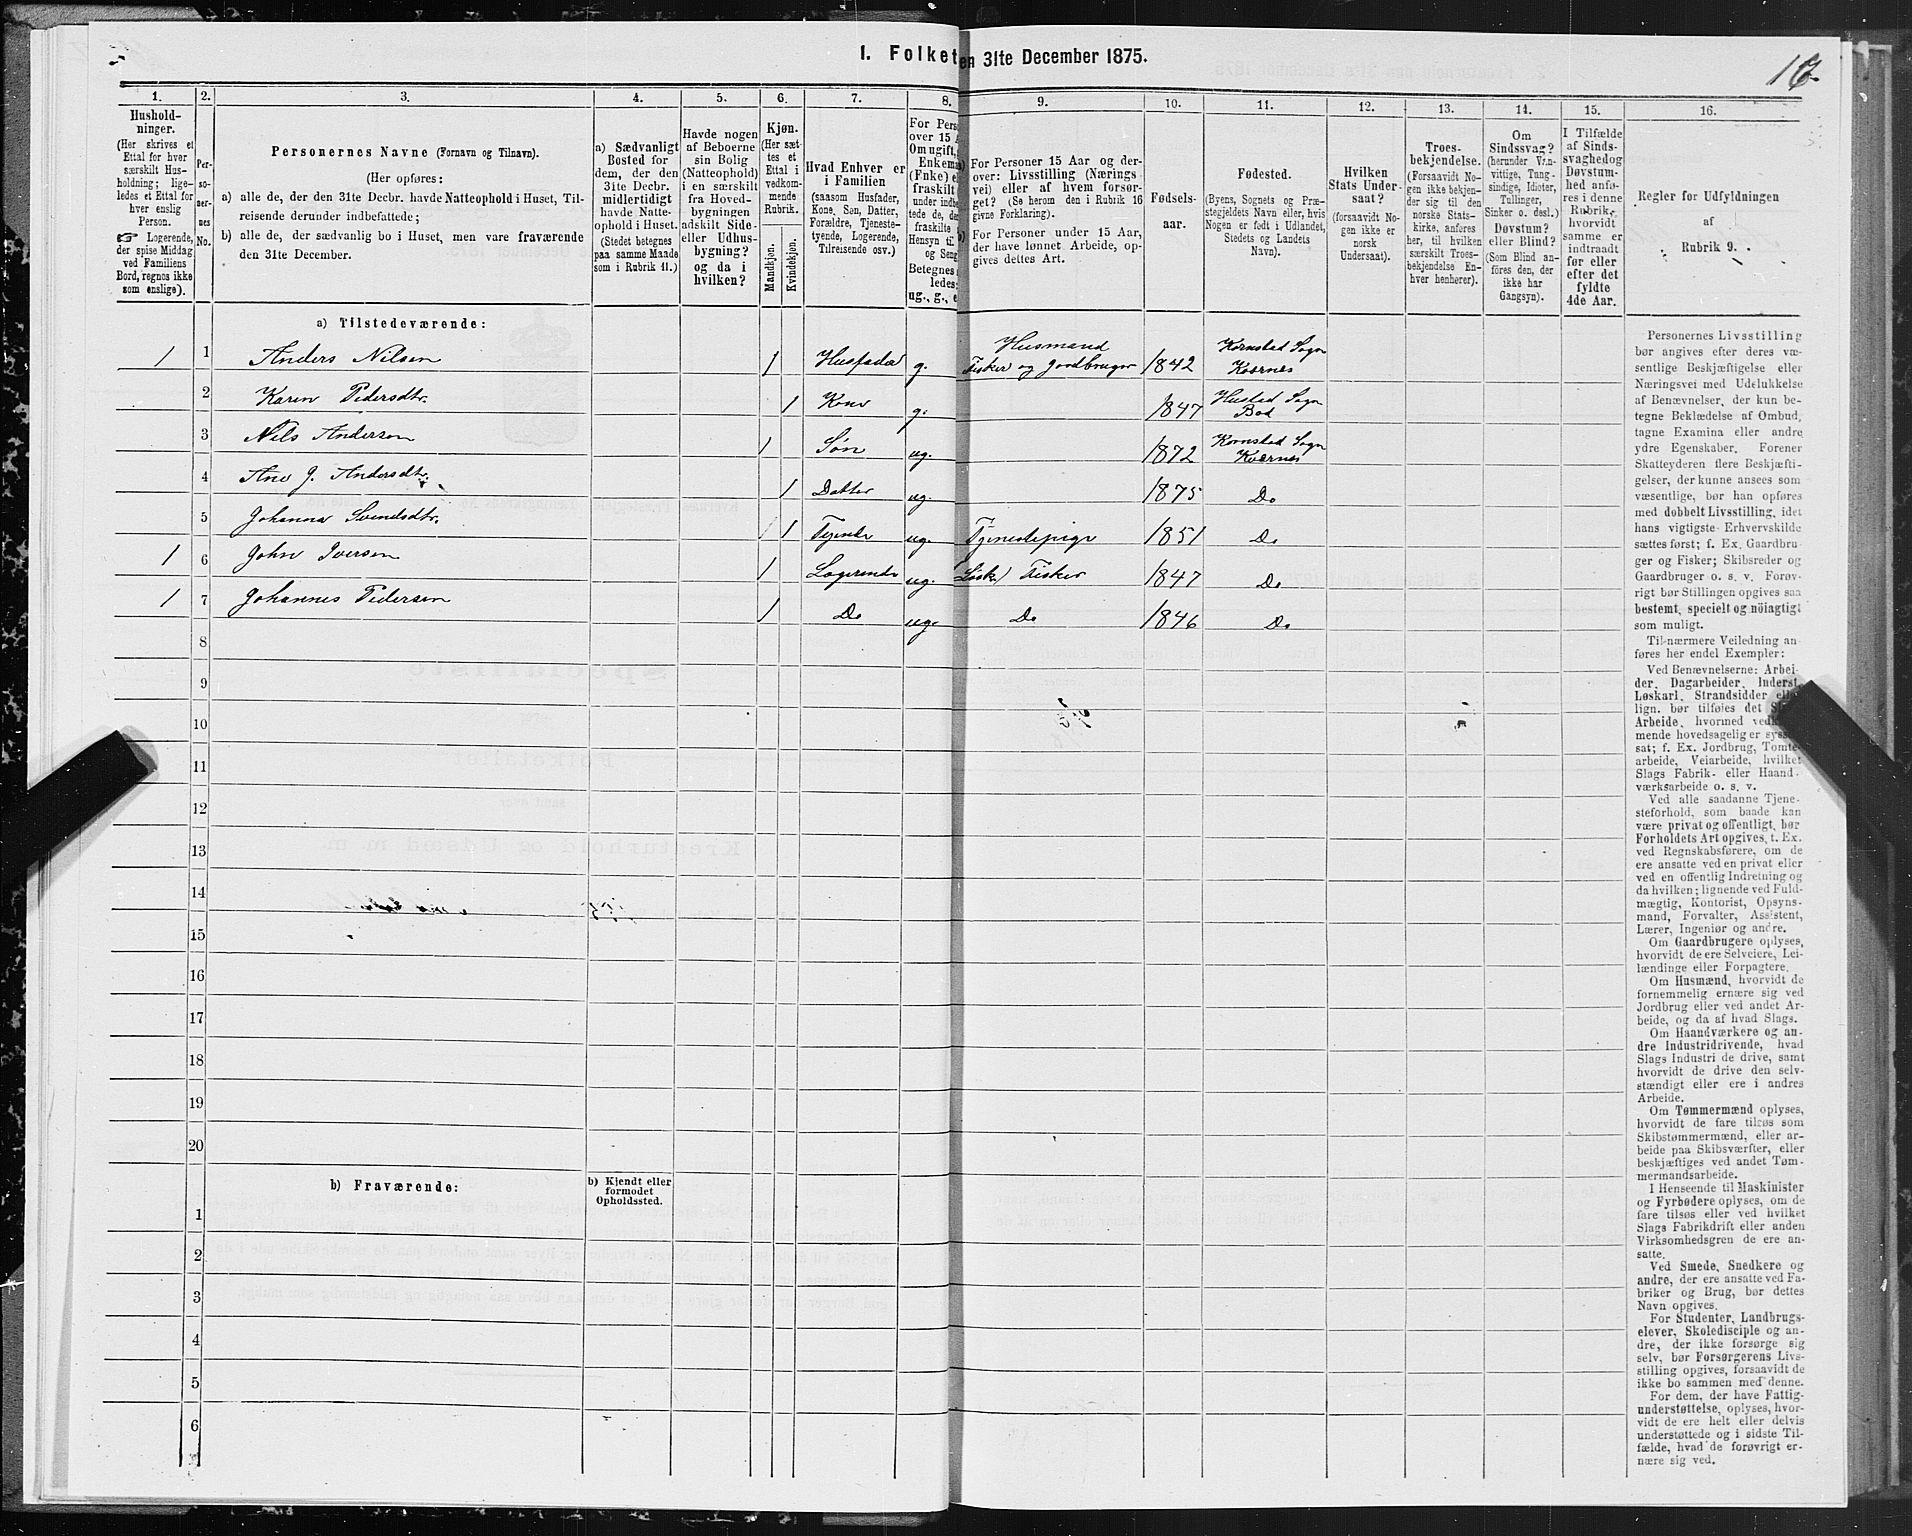 1. Folket en 31te December 1875.
1. 2. 3. 4. 5. 6. 7. 8. 9. 10. 11. 12. 13. 14. 15. 16.
Hushold-
ninger.
(Her skrives et
Ettal for hver
særskilt Hus-
holdning; lige-
ledes et Ettal for
hver enslig
Person.
☞ Logerende,
der spise Middag
ved Familiens
Bord, regnes ikke
som enslige).
Per-
so-
ner-
nes
No.
Personernes Navne (Fornavn og Tilnavn).
(Her opføres:
a) alle de, der den 31te Decbr. havde Natteophold i Huset, Til-
reisende derunder indbefattede;
b) alle de, der sædvanlig bo i Huset, men vare fraværende
den 31te December.
a) Sædvanligt
Bosted for
dem, der den
31te Decbr.
midlertidigt
havde Natte-
ophold i Huset.
(Stedet betegnes
paa samme Maade
som i Rubrik 11.)
Havde nogen
af Beboerne
sin Bolig
(Natteophold)
i en særskilt
fra Hoved-
bygningen
adskilt Side-
eller Udhus-
bygning?
og da i
hvilken?
Kjøn.
(Her sæt-
tes et
Ettal i
vedkom-
mende
Rubrik.
Mandkjøn.
Kvindekjøn.
Hvad Enhver er
i Familien
(saasom Husfader,
Kone, Søn, Datter,
Forældre, Tjeneste-
tyende, Logerende,
Tilreisende osv.)
For Pers
over 15 A
Om ugift,
Enkema
(Enke) e
fraskilt
under indte
tede de, de
fraskilte
Hensyn til
og Seng
Betegnes
ledes:
ug., g., e
For Personer 15 Aar og der-
over: Livsstilling (Nærings
vei) eller af hvem forsør-
get? (Se herom den i Rubrik 16
givne Forklaring).
For Personer under 15 Aar,
der have lønnet Arbeide, op-
gives dettes Art.
Fødsels-
aar.
Fødested.
(Byens, Sognets og Præ-
stegjeldets Navn eller, hvis
Nogen er født i Udlandet,
Stedets og Landets
Navn).
Hvilken
Stats Under-
saat?
(forsaavidt No-
gen ikke er
norsk
Undersaat).
Troes-
bekjendelse.
(Forsaavidt No-
gen ikke bekjen-
der sig til den
norske Stats-
kirke, anføres
her, til hvilken
særskilt Troes-
bekjendelse En-
hver henhører).
Om
Sindssvag?
(herunder Van-
vittige, Tung-
sindige, Idioter,
Tullinger,
Sinker o. desl.)
Døvstum?
eller Blind?
(Som Blind an-
føres den, der
ikke har
Gangsyn).
I Tilfælde
af Sinds-
svaghed og
Døvstum-
hed anfø-
res i denne
Rubrik,
hvorvidt
samme er
indtraadt
før eller
efter det
fyldte
4de Aar.
Regler for Udfyldningen
af
Rubrik 9.
a) Tilstedeværende:
1 1 Anders Nilsen 1 Husfader g. Husmand Fisker og Jordbruger 1842 Kornstad Sogn Kvernes
2 Karen Pedersdtr. 1 Kone g. 1847 Hustad Sogn Bod
3 Nils Andersen 1 Søn ug. 1872 Kornstad Sogn Kvernes
4 Ane J. Andersdtr. 1 Datter ug. 1875 Do
5 Johanna Svendsdtr. 1 Tyende ug. Tjenestepige 1851 Do
1 6 John Iversen 1 Logerende ug. Fisker 1847 Do
1 7 Johannes Pedersen 1 Do ug. Do 1846 Do
8
9
10
11
12
13
14
15
16
17
18
19
20
b) Fraværende:
b) Kjendt eller
formodet
Opholdssted.
1
2
3
4
5
6
Personernes Livsstilling
bør angives efter deres væ-
sentlige Beskjæftigelse eller
Næringsvei med Udelukkelse
af Benævnelser, der kun be-
tegne Beklædelse af Ombud,
tagne Examina eller andre
ydre Egenskaber. Forener
Skatteyderen flere Beskjæfti-
gelser, der kunne ansees som
væsentlige, bør han opføres
med dobbelt Livsstilling, idet
hans vigtigste Erhvervskilde
sættes først; f. Ex. Gaardbru-
ger og Fisker; Skibsreder og
Gaardbruger o. s. v. Forøv-
rigt bør Stillingen opgives saa
bestemt, specielt og nöiagtigt
som muligt.
Til nærmere Veiledning an-
føres her endel Exempler:
Ved Benævnelserne: Arbei-
der, Dagarbeider, Inderst,
Løskarl, Strandsidder el
lign. bør tilføies det S
Arbeide, hvormed ved
mende hovedsagelig er syss
sat; f. Ex. Jordbrug, Tomte-
arbeide, Veiarbeide, hvilket
Slags Fabrik- eller Haand-
værksarbeide o. s. v.
Ved alle saadanne Tjene-
steforhold, som baade kan
være privat og offentligt, bør
Forholdets Art opgives, t. Ex.
ved Regnskabsførere, om de
ere ansatte ved en privat eller
ved en offentlig Indretning og
da hvilken; lignende ved Fuld-
mægtig, Kontorist, Opsyns-
mand, Forvalter, Assistent,
Lærer, Ingeniør og andre.
Om Gaardbrugere oplyses,
hvorvidt de ere Selveiere, Lei-
lændinge eller Forpagtere.
Om Husmænd, hvorvidt de
fornemmelig ernære sig ved
Jordbrug eller ved andet Ar-
beide, og da af hvad Slags.
Om Haandværkere og an-
dre Industridrivende, hvad
Slags Industri de drive, samt
hvorvidt de drive den selv-
stændigt eller ere i andres
Arbeide.
Om Tømmermænd oplyses,
hvorvidt de fare tilsøs som
Skibstømmermænd, eller ar-
beide paa Skibsværfter, eller
beskjæftiges ved andet Tøm-
mermandsarbeide.
I Henseende til Maskinister
og Fyrbødere oplyses, om de
fare tilsøs eller ved hvilket
Slags Fabrikdrift eller anden
Virksomhedsgren de ere an-
satte.
Ved Smede, Snedkere og
andre, der ere ansatte ved Fa-
briker og Brug, bør dettes
Navn opgives.
For Studenter, Landbrugs-
elever, Skoledisciple og an-
dre, der ikke forsørge sig
selv, bør Forsørgerens Livs-
stilling opgives, forsaavidt de
ikke bo sammen med denne.
For dem, der have Fattig-
understøttelse, oplyses, hvor-
vidt de ere helt eller delvis
understøttede og i sidste Til-
fælde, hvad de forøvrigt er-
nære sig ved.